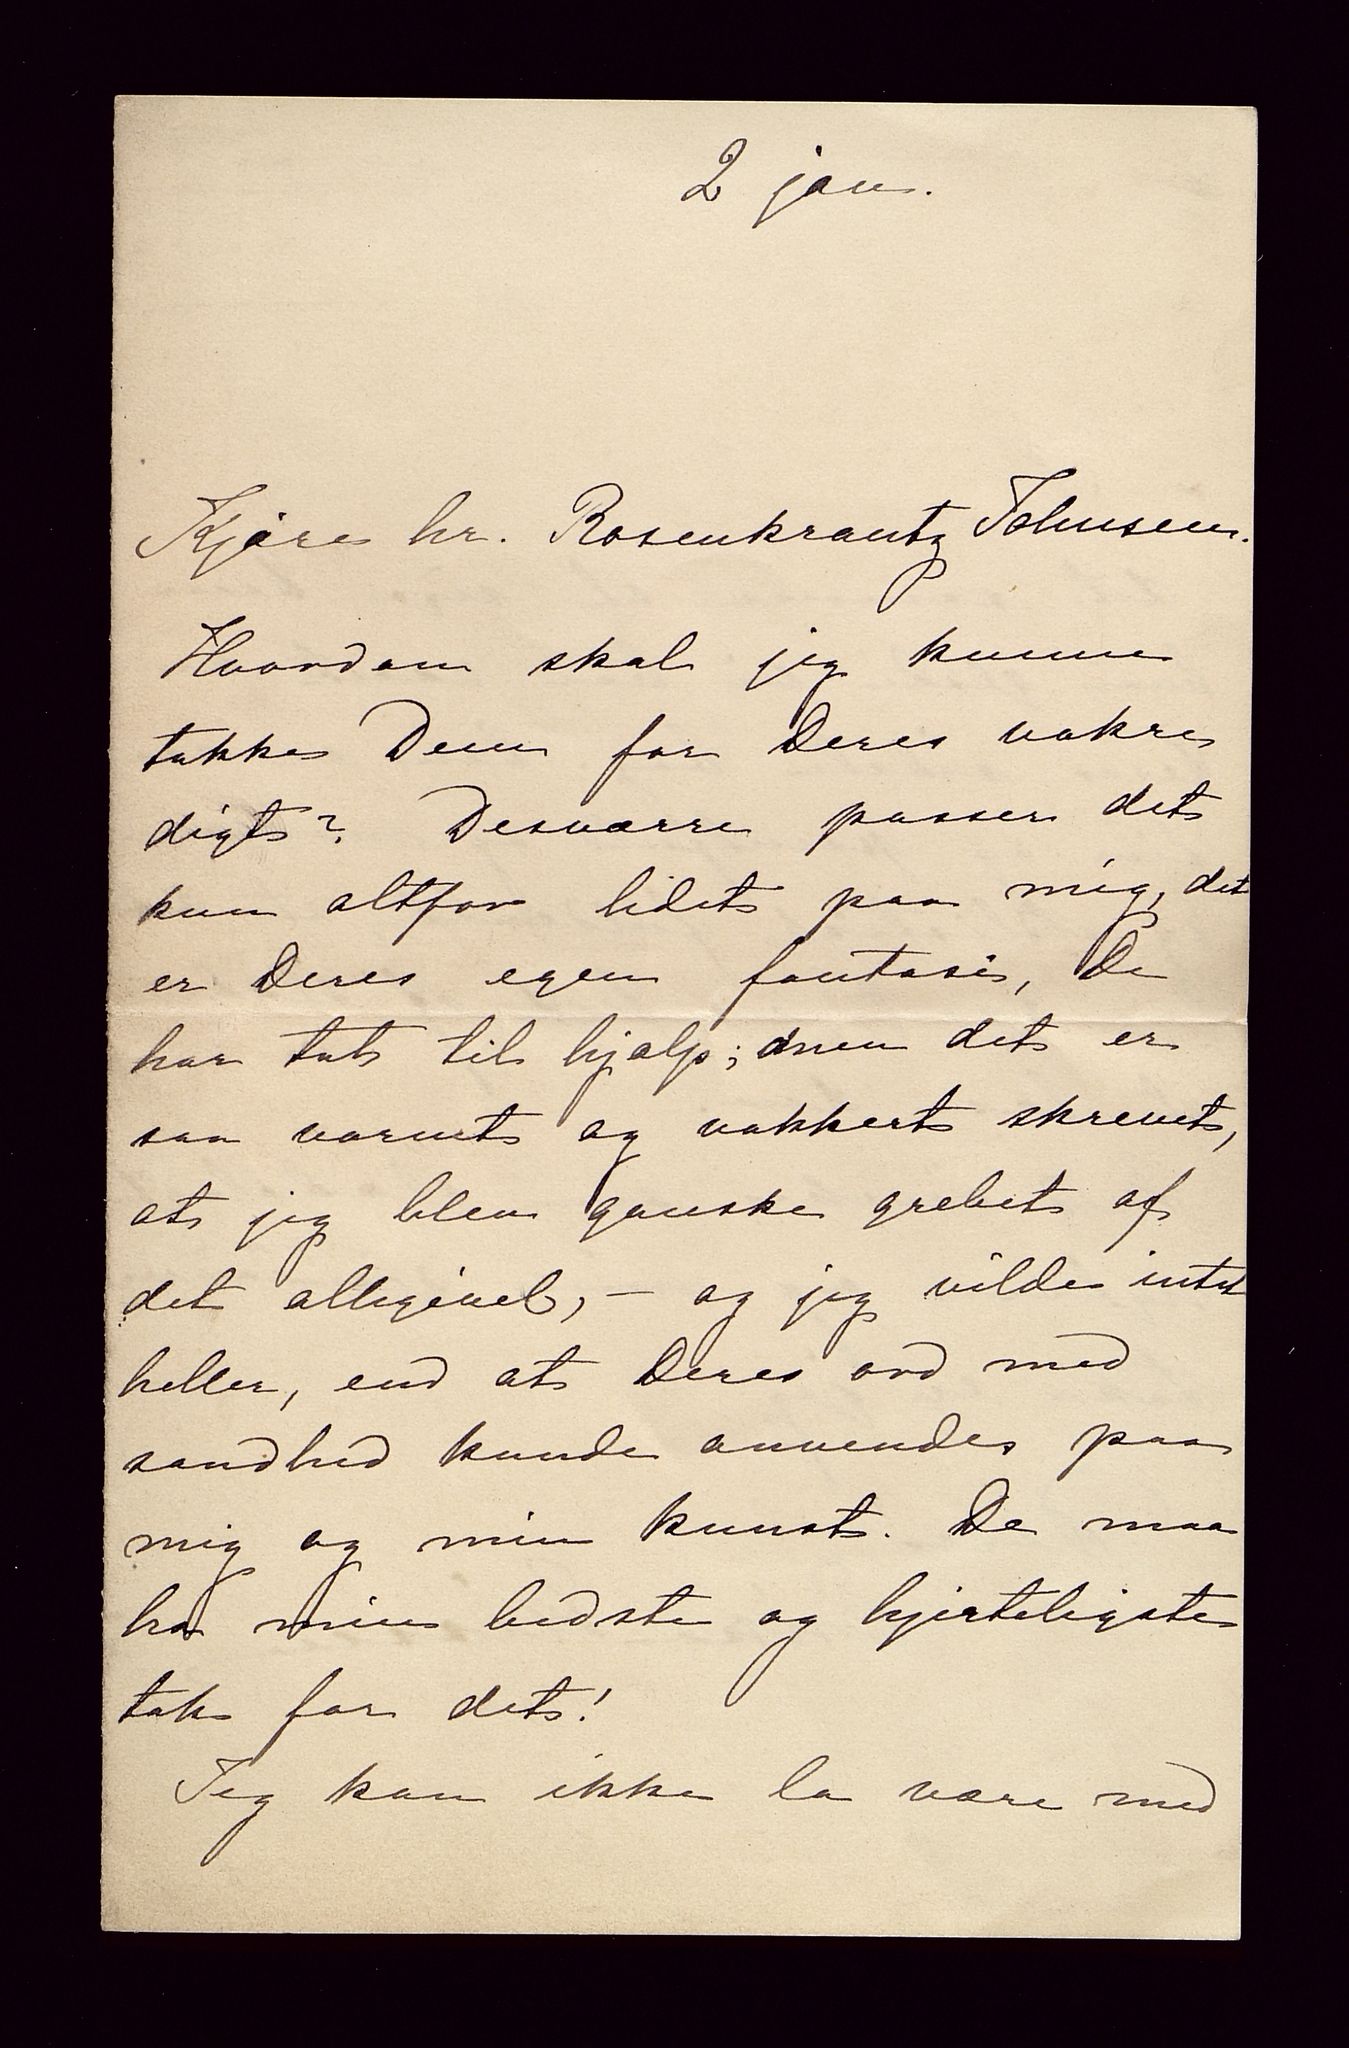 2 jan.
Kjære hr. Rosenkrantz Johnsen.
Hvordan skal jeg kunne
takke Dem for Deres vakre
digt? Desværre passer det
kun altfor lidet paa mig, det
er Deres egen fantasi, De
har tat til hjælp; men det er
saa varmt og vakkert skrevet,
at jeg blev ganske grebet af
det alligevel, – og jeg vilde intet
heller, end at Deres ord med
sandhed kunde anvendes paa
mig og min kunst. De maa
ha min bedste og hjerteligste
tak for det!
Jeg kan ikke la være med